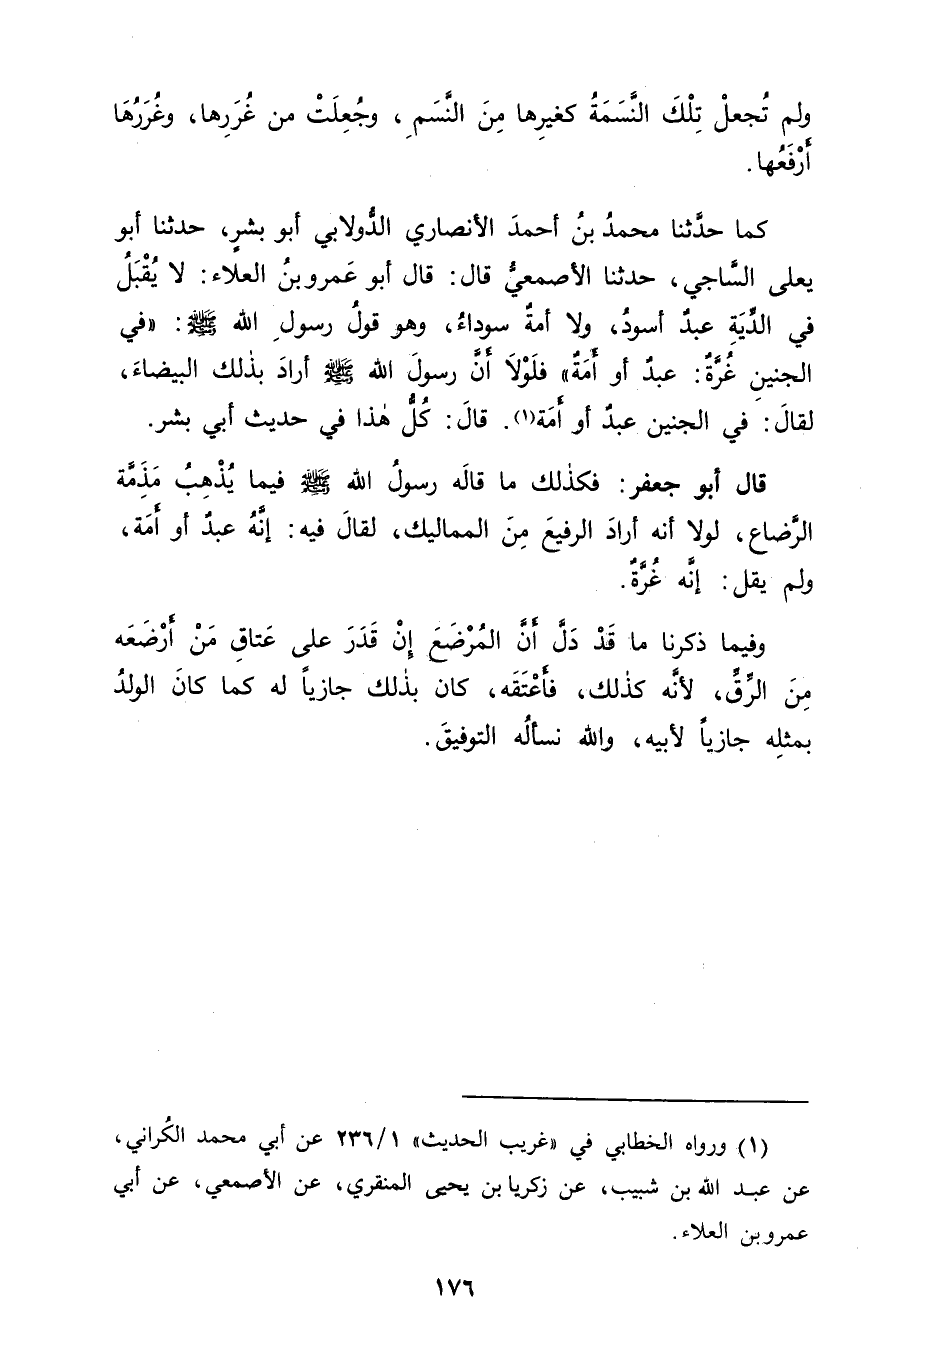 ولم تُجعلْ تِلْكَ النَّسَمَةُ كغيرِها مِنَ النَّسَمِ، وجُعِلَتْ من غُرَرِها، وغُرَرُهَا
أَرْفَعُها.
كما حدَّثنا محمدُ بنُ أحمدَ الأنصاري الدُّولابي أبو بشرٍ، حدثنا أبو
يعلى السَّاجي، حدثنا الأصمعيُّ قال: قال أبو عَمرو بنُ العلاء: لا يُقْبَلُ
في الدِّيَةِ عبدٌ أسودُ، ولا أمةٌ سوداءُ، وهو قولُ رسولِ الله ﷺ: «في
الجنينِ غُرَّةٌ: عبدٌ أو أَمَةٌ» فلَوْلَا أَنَّ رسولَ الله ﷺ أرادَ بذٰلك البيضاءَ،
لقالَ: في الجنين عبدٌ أو أَمَة(١). قالَ: كُلُّ هٰذا في حديث أبي بشر.
قال أبو جعفر: فكذٰلك ما قالَه رسولُ الله ﷺ فيما يُذْهِبُ مَذَِمَّة
الرَّضاع، لولا أنه أرادَ الرفيعَ مِنَ المماليك، لقالَ فيه: إنَّهُ عبدٌ أو أَمَة،
ولم يقل: إنَّه غُرَّةٌ.
وفيما ذكرنا ما قَدْ دَلَّ أَنَّ المُرْضَعَ إِنْ قَدَرَ على عَتاقِ مَنْ أَرْضَعَه
مِنَ الرِّقِّ، لأنَّه كذٰلك، فأَعْتَقَه، كان بذٰلك جازياً له كما كانَ الولدُ
بمثلِه جازياً لأبيه، والله نسألُه التوفيقَ.
(١) ورواه الخطابي في «غريب الحديث» ٢٣٦/١ عن أبي محمد الكُراني،
عن عبد الله بن شبيب، عن زكريا بن يحيى المنقري، عن الأصمعي، عن أبي
عمرو بن العلاء.
١٧٦